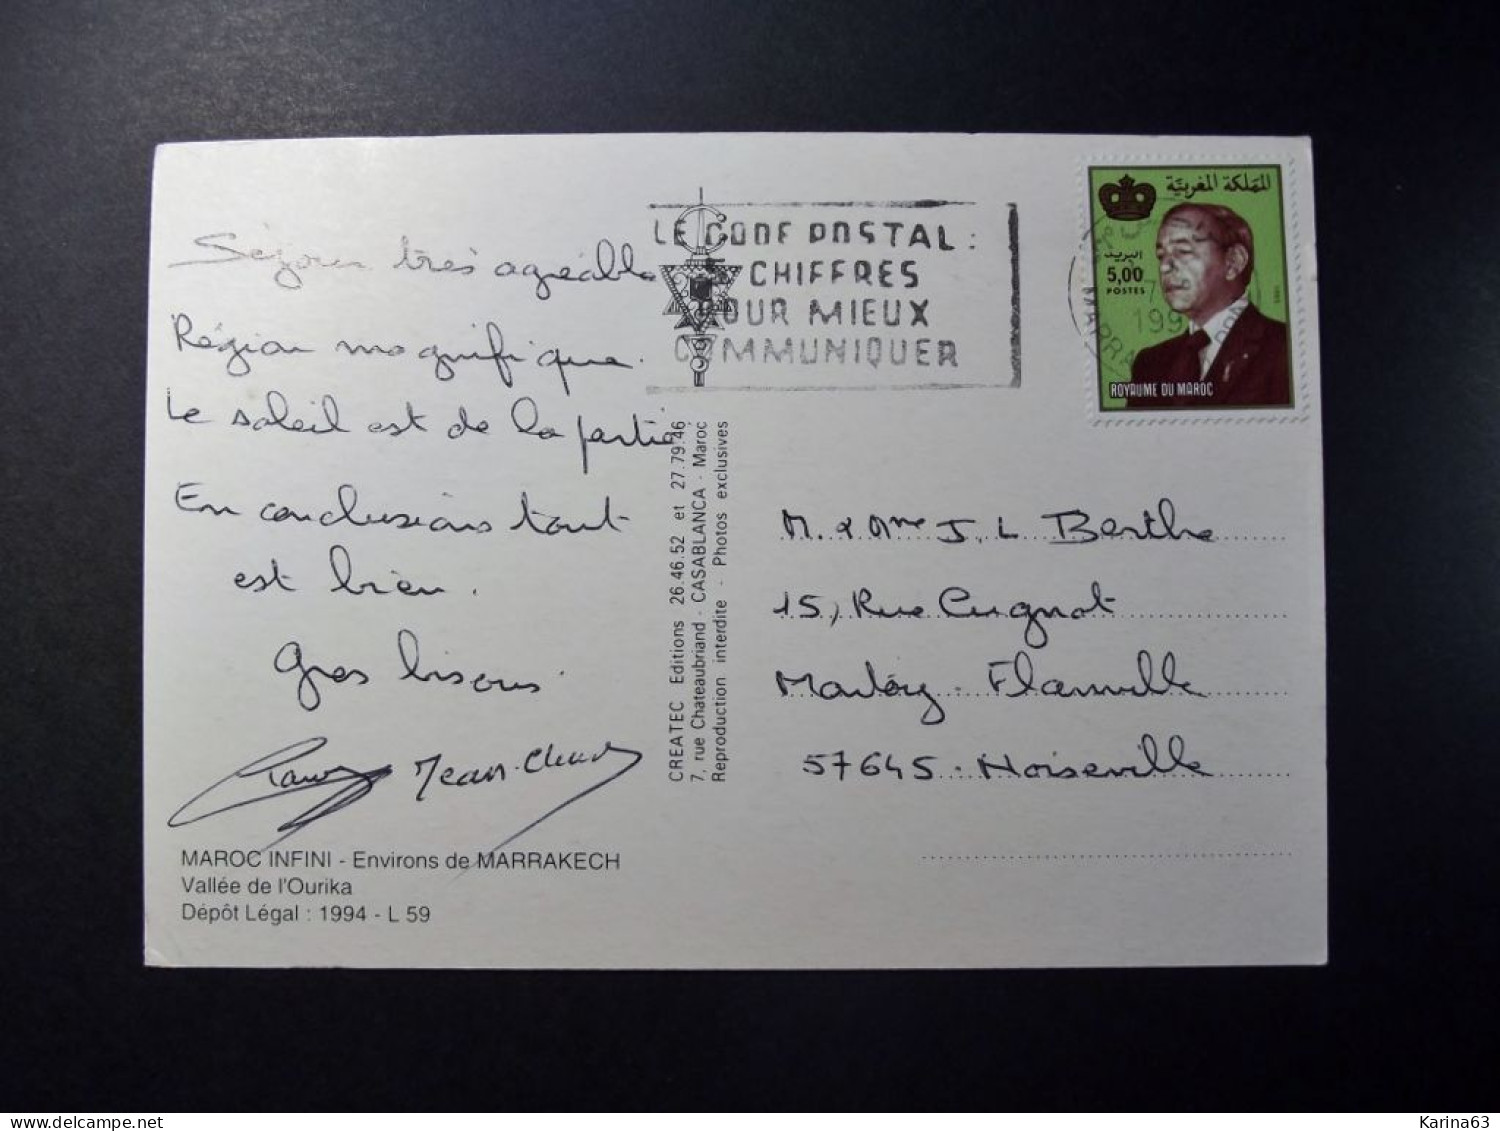 Séjour très agréable
Région magnifique.
Le soleil est de la partie
En conclusions tout
est bien.
Gros bisous.
Jean-Claude
MAROC INFINI - Environs de MARRAKECH
Vallée de l'Ourika
Dépôt Légal : 1994 - L 59
CREATEC Editions 26.46.52 et 27.79.46
7, rue Chateaubriand - CASABLANCA - Maroc
Reproduction interdite - Photos exclusives
LE CODE POSTAL :
5 CHIFFRES
POUR MIEUX
COMMUNIQUER
المملكة المغربية
البريد
5,00
POSTES
ROYAUME DU MAROC
199
M. & Mme J. L Berthe
15, Rue Cugnot
Flanville
57645 - Noiseville
Karina63